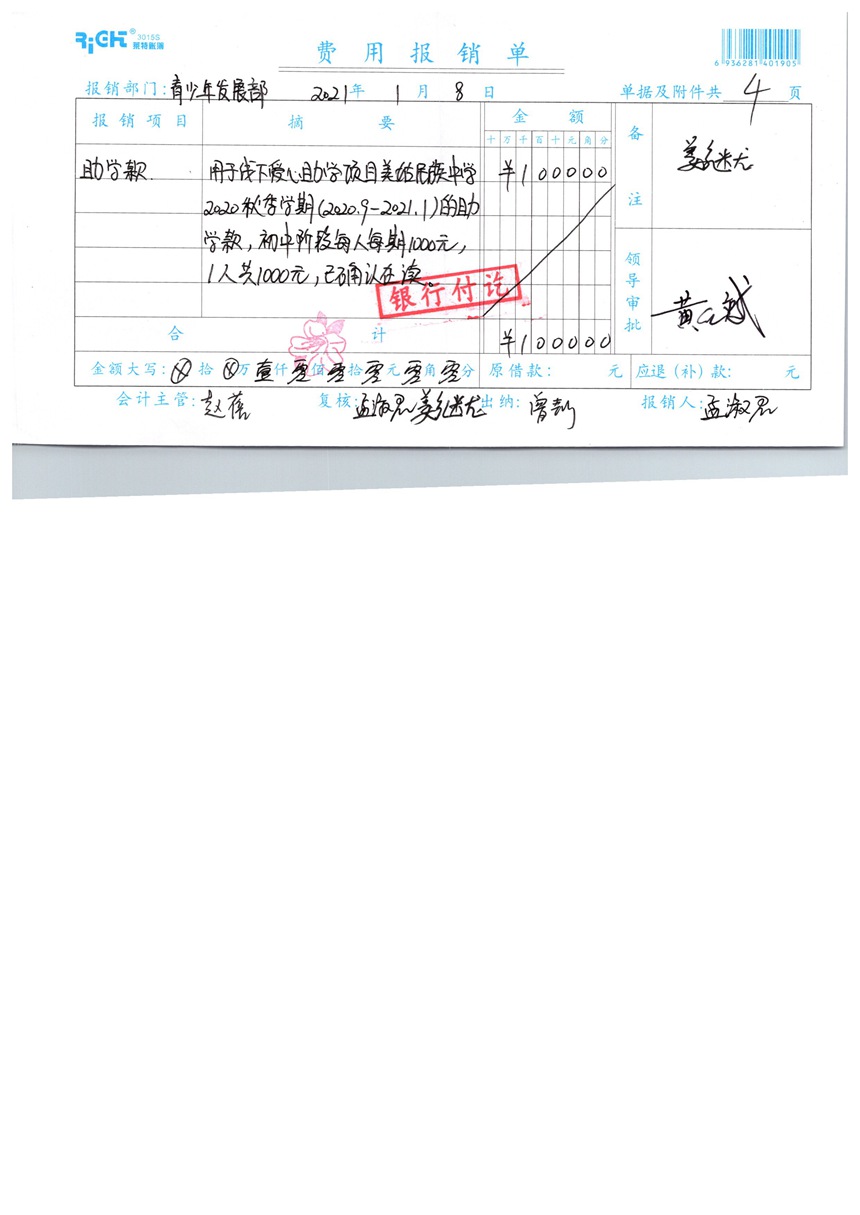 RiCHT® 3015S
莱特账簿
费用报销单
6 936281 401905
报销部门:青少年发展部 2021年 1月 8日 单据及附件共 4 页
报销项目 摘要 金额 备注
十万千百十元角分
助学款 用于线下爱心助学项目美姑民族中学 ¥100000
2020秋季学期(2020.9-2021.1)的助
学款,初中阶段每人每期1000元,
1人共1000元,已确认在读。
领导审批
银行付讫
合计 ¥100000
金额大写:⊗拾⊗万壹仟零佰零拾零元零角零分 原借款: 元 应退(补)款: 元
会计主管:赵蓓 复核:孟淑君 出纳: 报销人:孟淑君